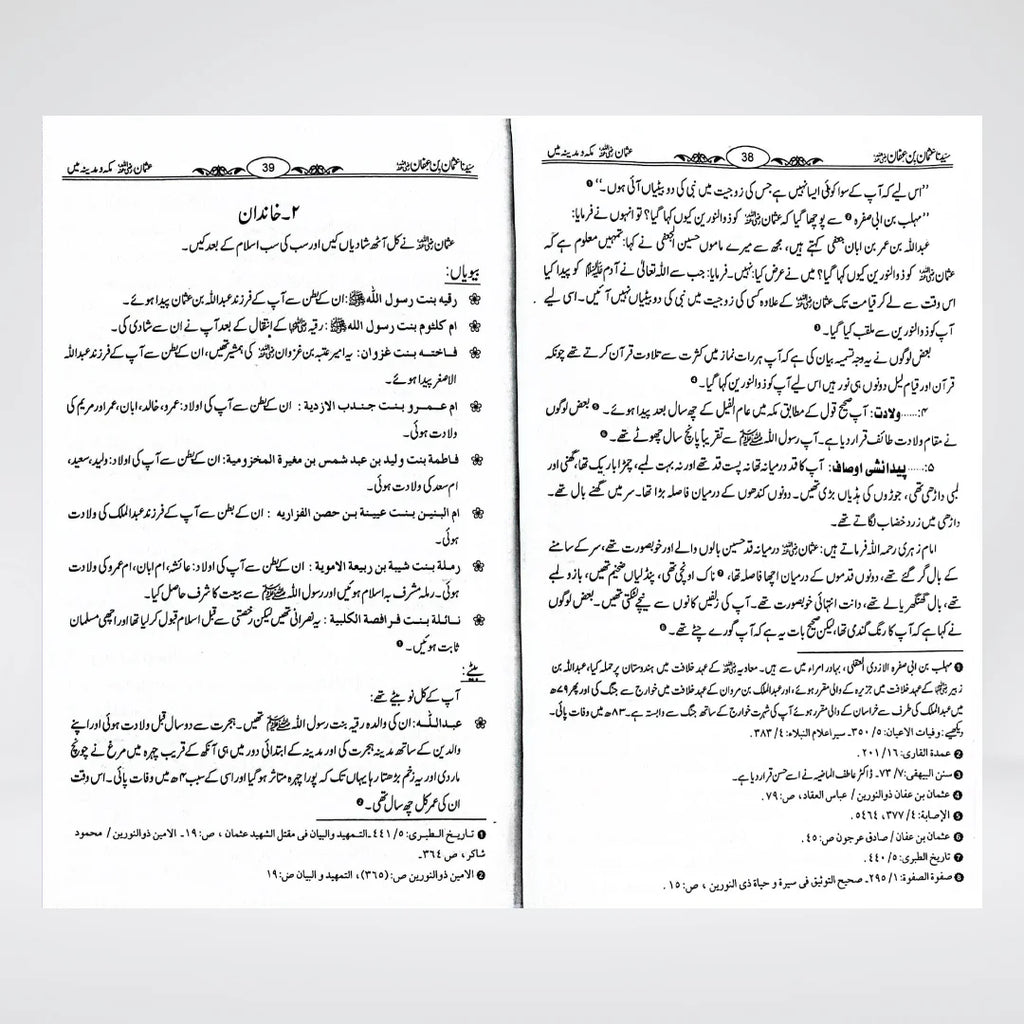 سیدنا عثمان بن عفان رضی اللہ عنہ 38 عثمان رضی اللہ عنہ مکہ و مدینہ میں
”اس لیے کہ آپ کے سوا کوئی ایسا نہیں ہے جس کی زوجیت میں نبی کی دو بیٹیاں آئی ہوں۔“ ❶
”مہلب بن ابی صفرہ ❷ سے پوچھا گیا کہ عثمان رضی اللہ عنہ کو ذوالنورین کیوں کہا گیا؟ تو انہوں نے فرمایا:
عبداللہ بن عمر بن ابان جعفی کہتے ہیں، مجھ سے میرے ماموں حسین الجعفی نے کہا: تمہیں معلوم ہے کہ
عثمان رضی اللہ عنہ کو ذوالنورین کیوں کہا گیا؟ میں نے عرض کیا: نہیں۔ فرمایا: جب سے اللہ تعالیٰ نے آدم علیہ السلام کو پیدا کیا
اس وقت سے لے کر قیامت تک عثمان رضی اللہ عنہ کے علاوہ کسی کی زوجیت میں نبی کی دو بیٹیاں نہیں آئیں۔ اسی لیے
آپ کو ذوالنورین سے ملقب کیا گیا۔ ❸
بعض لوگوں نے یہ وجہ تسمیہ بیان کی ہے کہ آپ ہر رات نماز میں کثرت سے تلاوت قرآن کرتے تھے چونکہ
قرآن اور قیام لیل دونوں ہی نور ہیں اس لیے آپ کو ذوالنورین کہا گیا۔ ❹
۴:……ولادت: آپ صحیح قول کے مطابق مکہ میں عام الفیل کے چھ سال بعد پیدا ہوئے۔ ❺ بعض لوگوں
نے مقام ولادت طائف قرار دیا ہے۔ آپ رسول اللہ ﷺ سے تقریباً پانچ سال چھوٹے تھے۔ ❻
۵:……پیدائشی اوصاف: آپ کا قد درمیانہ تھا نہ پست قد تھے اور نہ بہت لمبے، چمڑا باریک تھا، گھنی اور
لمبی داڑھی تھی، جوڑوں کی ہڈیاں بڑی تھیں۔ دونوں کندھوں کے درمیان فاصلہ بڑا تھا۔ سر میں گھنے بال تھے۔
داڑھی میں زرد خضاب لگاتے تھے۔
امام زہری رحمہ اللہ فرماتے ہیں: عثمان رضی اللہ عنہ درمیانہ قد حسین بالوں والے اور خوبصورت تھے، سر کے سامنے
کے بال گر گئے تھے، دونوں قدموں کے درمیان اچھا فاصلہ تھا، ❼ ناک اونچی تھی، پنڈلیاں ضخیم تھیں، بازو لمبے
تھے، بال گھنگھریالے تھے، دانت انتہائی خوبصورت تھے۔ آپ کی زلفیں کانوں سے نیچے لٹکتی تھیں۔ بعض لوگوں
نے کہا ہے کہ آپ کا رنگ گندمی تھا، لیکن صحیح بات یہ ہے کہ آپ گورے چٹے تھے۔ ❽
❶ مہلب بن ابی صفرہ الازدی العتکی، بہادر امراء میں سے ہیں۔ معاویہ رضی اللہ عنہ کے عہد خلافت میں ہندوستان پر حملہ کیا، عبداللہ بن
زبیر رضی اللہ عنہما کے عہد خلافت میں جزیرہ کے والی مقرر ہوئے، اور عبدالملک بن مروان کے عہد خلافت میں خوارج سے جنگ کی اور پھر ۷۹ھ
میں عبدالملک کی طرف سے خراسان کے والی مقرر ہوئے آپ کی شہرت خوارج کے ساتھ جنگ سے وابستہ ہے۔ ۸۳ھ میں وفات پائی۔
دیکھیے: وفیات الاعیان: ۵/ ۳۵۰۔ سیر اعلام النبلاء: ۴/ ۳۸۳ .
❷ عمدة القاری: ۱۶/ ۲۰۱ .
❸ سنن البیهقی: ۷/ ۷۳۔ ڈاکٹر عاطف الماضیہ نے اسے حسن قرار دیا ہے۔
❹ عثمان بن عفان ذوالنورین / عباس العقاد، ص: ۷۹ .
❺ الإصابة: ۴/ ۳۷۷، ۵۴۶۴ .
❻ عثمان بن عفان / صادق عرجون ص: ۴۵ .
❼ تاریخ الطبری: ۵/ ۴۴۰ .
❽ صفوة الصفوة: ۱/ ۲۹۵۔ صحیح التوثیق فی سیرة و حیاة ذی النورین ، ص: ۱۵ .
سیدنا عثمان بن عفان رضی اللہ عنہ 39 عثمان رضی اللہ عنہ مکہ و مدینہ میں
۲۔ خاندان
عثمان رضی اللہ عنہ نے کل آٹھ شادیاں کیں اور سب کی سب اسلام کے بعد کیں۔
بیویاں:
❀ رقیہ بنت رسول اللہ ﷺ: ان کے بطن سے آپ کے فرزند عبداللہ بن عثمان پیدا ہوئے۔
❀ ام کلثوم بنت رسول اللہ ﷺ: رقیہ رضی اللہ عنہا کے انتقال کے بعد آپ نے ان سے شادی کی۔
❀ فاختہ بنت غزوان: یہ امیر عتبہ بن غزوان رضی اللہ عنہ کی ہمشیر تھیں، ان کے بطن سے آپ کے فرزند عبداللہ
الاصغر پیدا ہوئے۔
❀ ام عمرو بنت جندب الازدیة: ان کے بطن سے آپ کی اولاد: عمرو، خالد، ابان، عمر اور مریم کی
ولادت ہوئی۔
❀ فاطمة بنت ولید بن عبد شمس بن مغیرة المخزومیة: ان کے بطن سے آپ کی اولاد: ولید، سعید،
ام سعد کی ولادت ہوئی۔
❀ ام البنین بنت عیینة بن حصن الفزاریه: ان کے بطن سے آپ کے فرزند عبدالملک کی ولادت
ہوئی۔
❀ رملة بنت شیبة بن ربیعة الامویة: ان کے بطن سے آپ کی اولاد: عائشہ، ام ابان، ام عمرو کی ولادت
ہوئی۔ رملہ مشرف بہ اسلام ہوئیں اور رسول اللہ ﷺ سے بیعت کا شرف حاصل کیا۔
❀ نائلة بنت فرافصة الکلبیة: یہ نصرانی تھیں لیکن رخصتی سے قبل اسلام قبول کر لیا تھا اور اچھی مسلمان
ثابت ہوئیں۔ ❶
بیٹے:
آپ کے کل نو بیٹے تھے:
❀ عبداللہ: ان کی والدہ رقیہ بنت رسول اللہ ﷺ تھیں۔ ہجرت سے دو سال قبل ولادت ہوئی اور اپنے
والدین کے ساتھ مدینہ ہجرت کی اور مدینہ کے ابتدائی دور میں ہی آنکھ کے قریب چہرہ میں مرغ نے چونچ
ماردی اور یہ زخم بڑھتا رہا یہاں تک کہ پورا چہرہ متاثر ہو گیا اور اسی کے سبب ۴ھ میں وفات پائی۔ اس وقت
ان کی عمر کل چھ سال تھی۔ ❷
❶ تاریخ الطبری: ۵/ ۴۴۱۔التمهید والبیان فی مقتل الشهید عثمان ، ص: ۱۹۔ الامین ذوالنورین / محمود
شاکر ، ص ۳۶۴۔
❷ الامین ذوالنورین ص: (۳۶۵)، التمهید و البیان ص: ۱۹